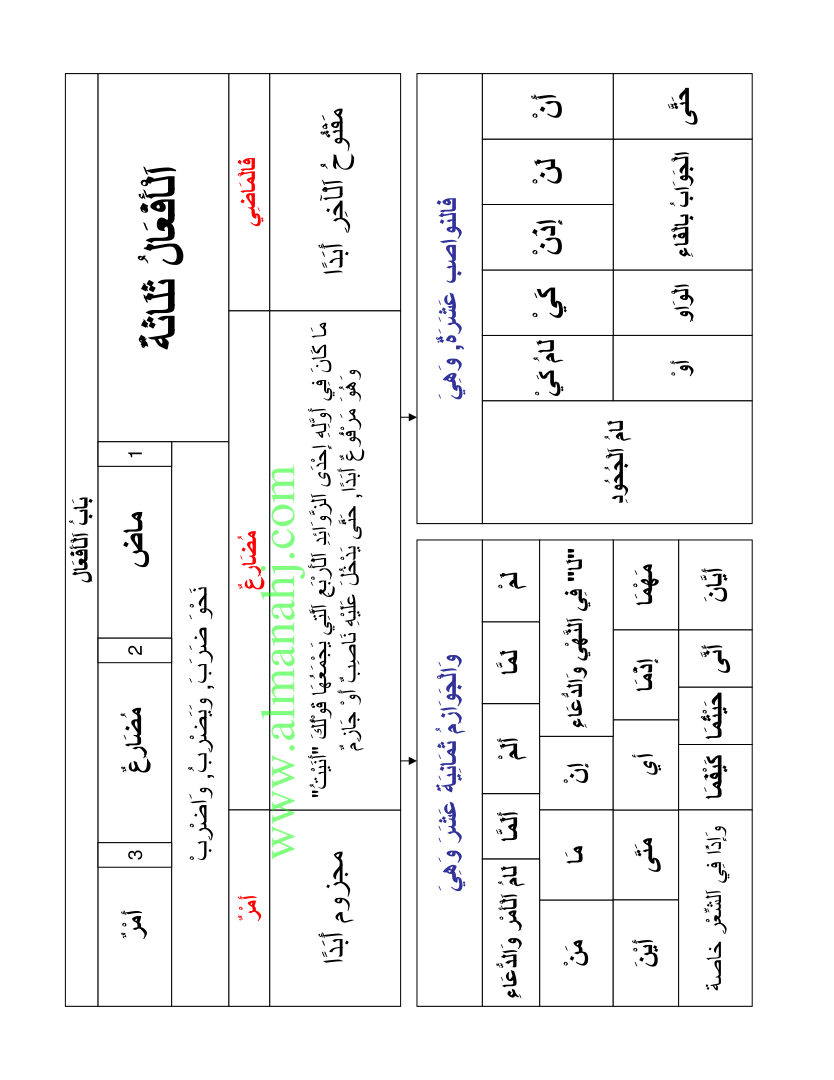 بَابُ الْأَفْعَال
اَلْأَفْعَالُ ثَلَاثَةٌ
1
ماض
2
مُضَارِعٌ
3
أَمْرٌ
نَحْوَ ضَرَبَ, وَيَضْرِبُ, وَاضْرِبْ
فَالْمَاضِي
مَفْتُوحُ اَلْآخِرِ أَبَدًا
مُضَارِعٌ
مَا كَانَ فِي أَوَّلِهِ إِحْدَى اَلزَّوَائِدِ اَلْأَرْبَعِ اَلَّتِي يَجْمَعُهَا قَوْلُكَ "أَنَيْتُ"
وَهُوَ مَرْفُوعٌ أَبَدًا, حَتَّى يَدْخُلَ عَلَيْهِ نَاصِبٌ أَوْ جَازِمٌ
أَمْرٌ
مجزوم أَبَدًا
فالنواصب عَشَرَةٌ, وَهِيَ
أَنْ
لَنْ
إِذَنْ
كَيْ
لَامُ كَيْ
حَتَّى
اَلْجَوَابُ بِالْفَاءِ
الْوَاوِ
أَوْ
لَامُ اَلْجُحُودِ
وَالْجَوَازِمُ ثَمَانِيَةَ عَشَرَ وَهِيَ
لَمْ
لَمَّا
أَلَمْ
أَلَمَّا
لَامُ اَلْأَمْرِ وَالدُّعَاءِ
"لَا" فِي اَلنَّهْيِ وَالدُّعَاءِ
إِنْ
مَا
مَنْ
مَهْمَا
إِذْمَا
أَي
مَتَى
أَيْنَ
أَيَّانَ
أَنَّى
حَيْثُمَا
كَيْفَمَا
وَإِذًا فِي اَلشِّعْرِ خاصة
www.almanahj.com